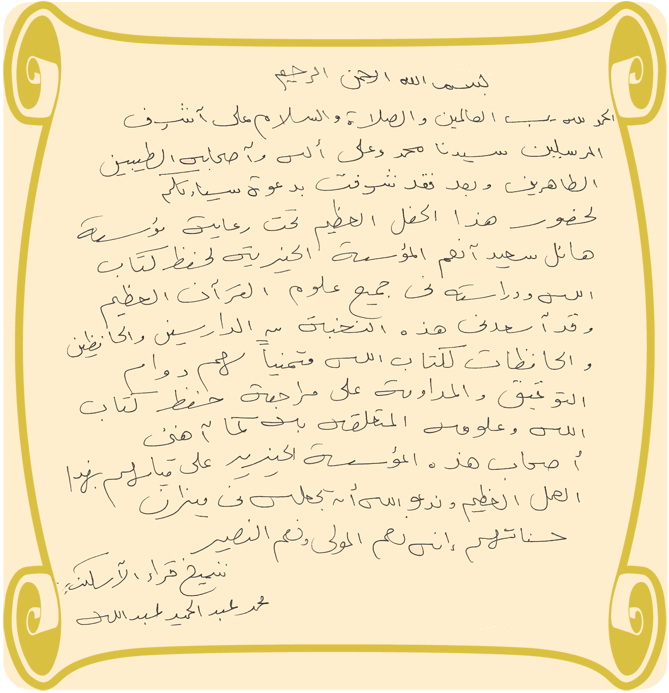 بسم الله الرحمن الرحيم
الحمد لله رب العالمين والصلاة والسلام على أشرف
المرسلين سيدنا محمد وعلى آله وأصحابه الطيبين
الطاهرين وبعد فقد شرفت بدعوة سيادتكم
لحضور هذا الحفل العظيم تحت رعاية مؤسسة
هائل سعيد أنعم المؤسسة الخيرية لحفظ كتاب
الله ودراسته فى جميع علوم القرآن العظيم
وقد أسعدنى هذه النخبة من الدارسين والحافظين
والحافظات لكتاب الله متمنياً لهم دوام
التوفيق والمداومة على مراجعة حفظ كتاب
الله وعلومه المتعلقة به كما أهنئ
أصحاب هذه المؤسسة الخيرية على قيامهم بهذا
العمل العظيم وندعو الله أن يجعله فى ميزان
حسناتهم إنه نعم المولى ونعم النصير
شيخ قراء الأسكندرية
محمد عبد الحميد عبد الله